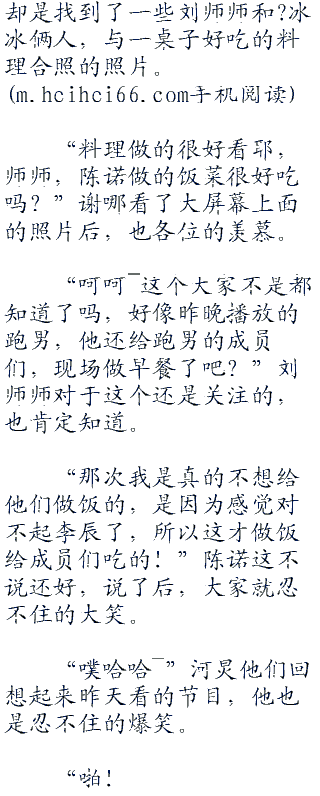 却是找到了一些刘师师和?冰
冰俩人，与一桌子好吃的料
理合照的照片。
(m.hcihci66.com手机阅读)
“料理做的很好看耶，
师师，陈诺做的饭菜很好吃
吗？”谢哪看了大屏幕上面
的照片后，也各位的羡慕。
“呵呵‾这个大家不是都
知道了吗，好像昨晚播放的
跑男，他还给跑男的成员
们，现场做早餐了吧？”刘
师师对于这个还是关注的，
也肯定知道。
“那次我是真的不想给
他们做饭的，是因为感觉对
不起李辰了，所以这才做饭
给成员们吃的！”陈诺这不
说还好，说了后，大家就忍
不住的大笑。
“噗哈哈‾”河炅他们回
想起来昨天看的节目，他也
是忍不住的爆笑。
“啪！